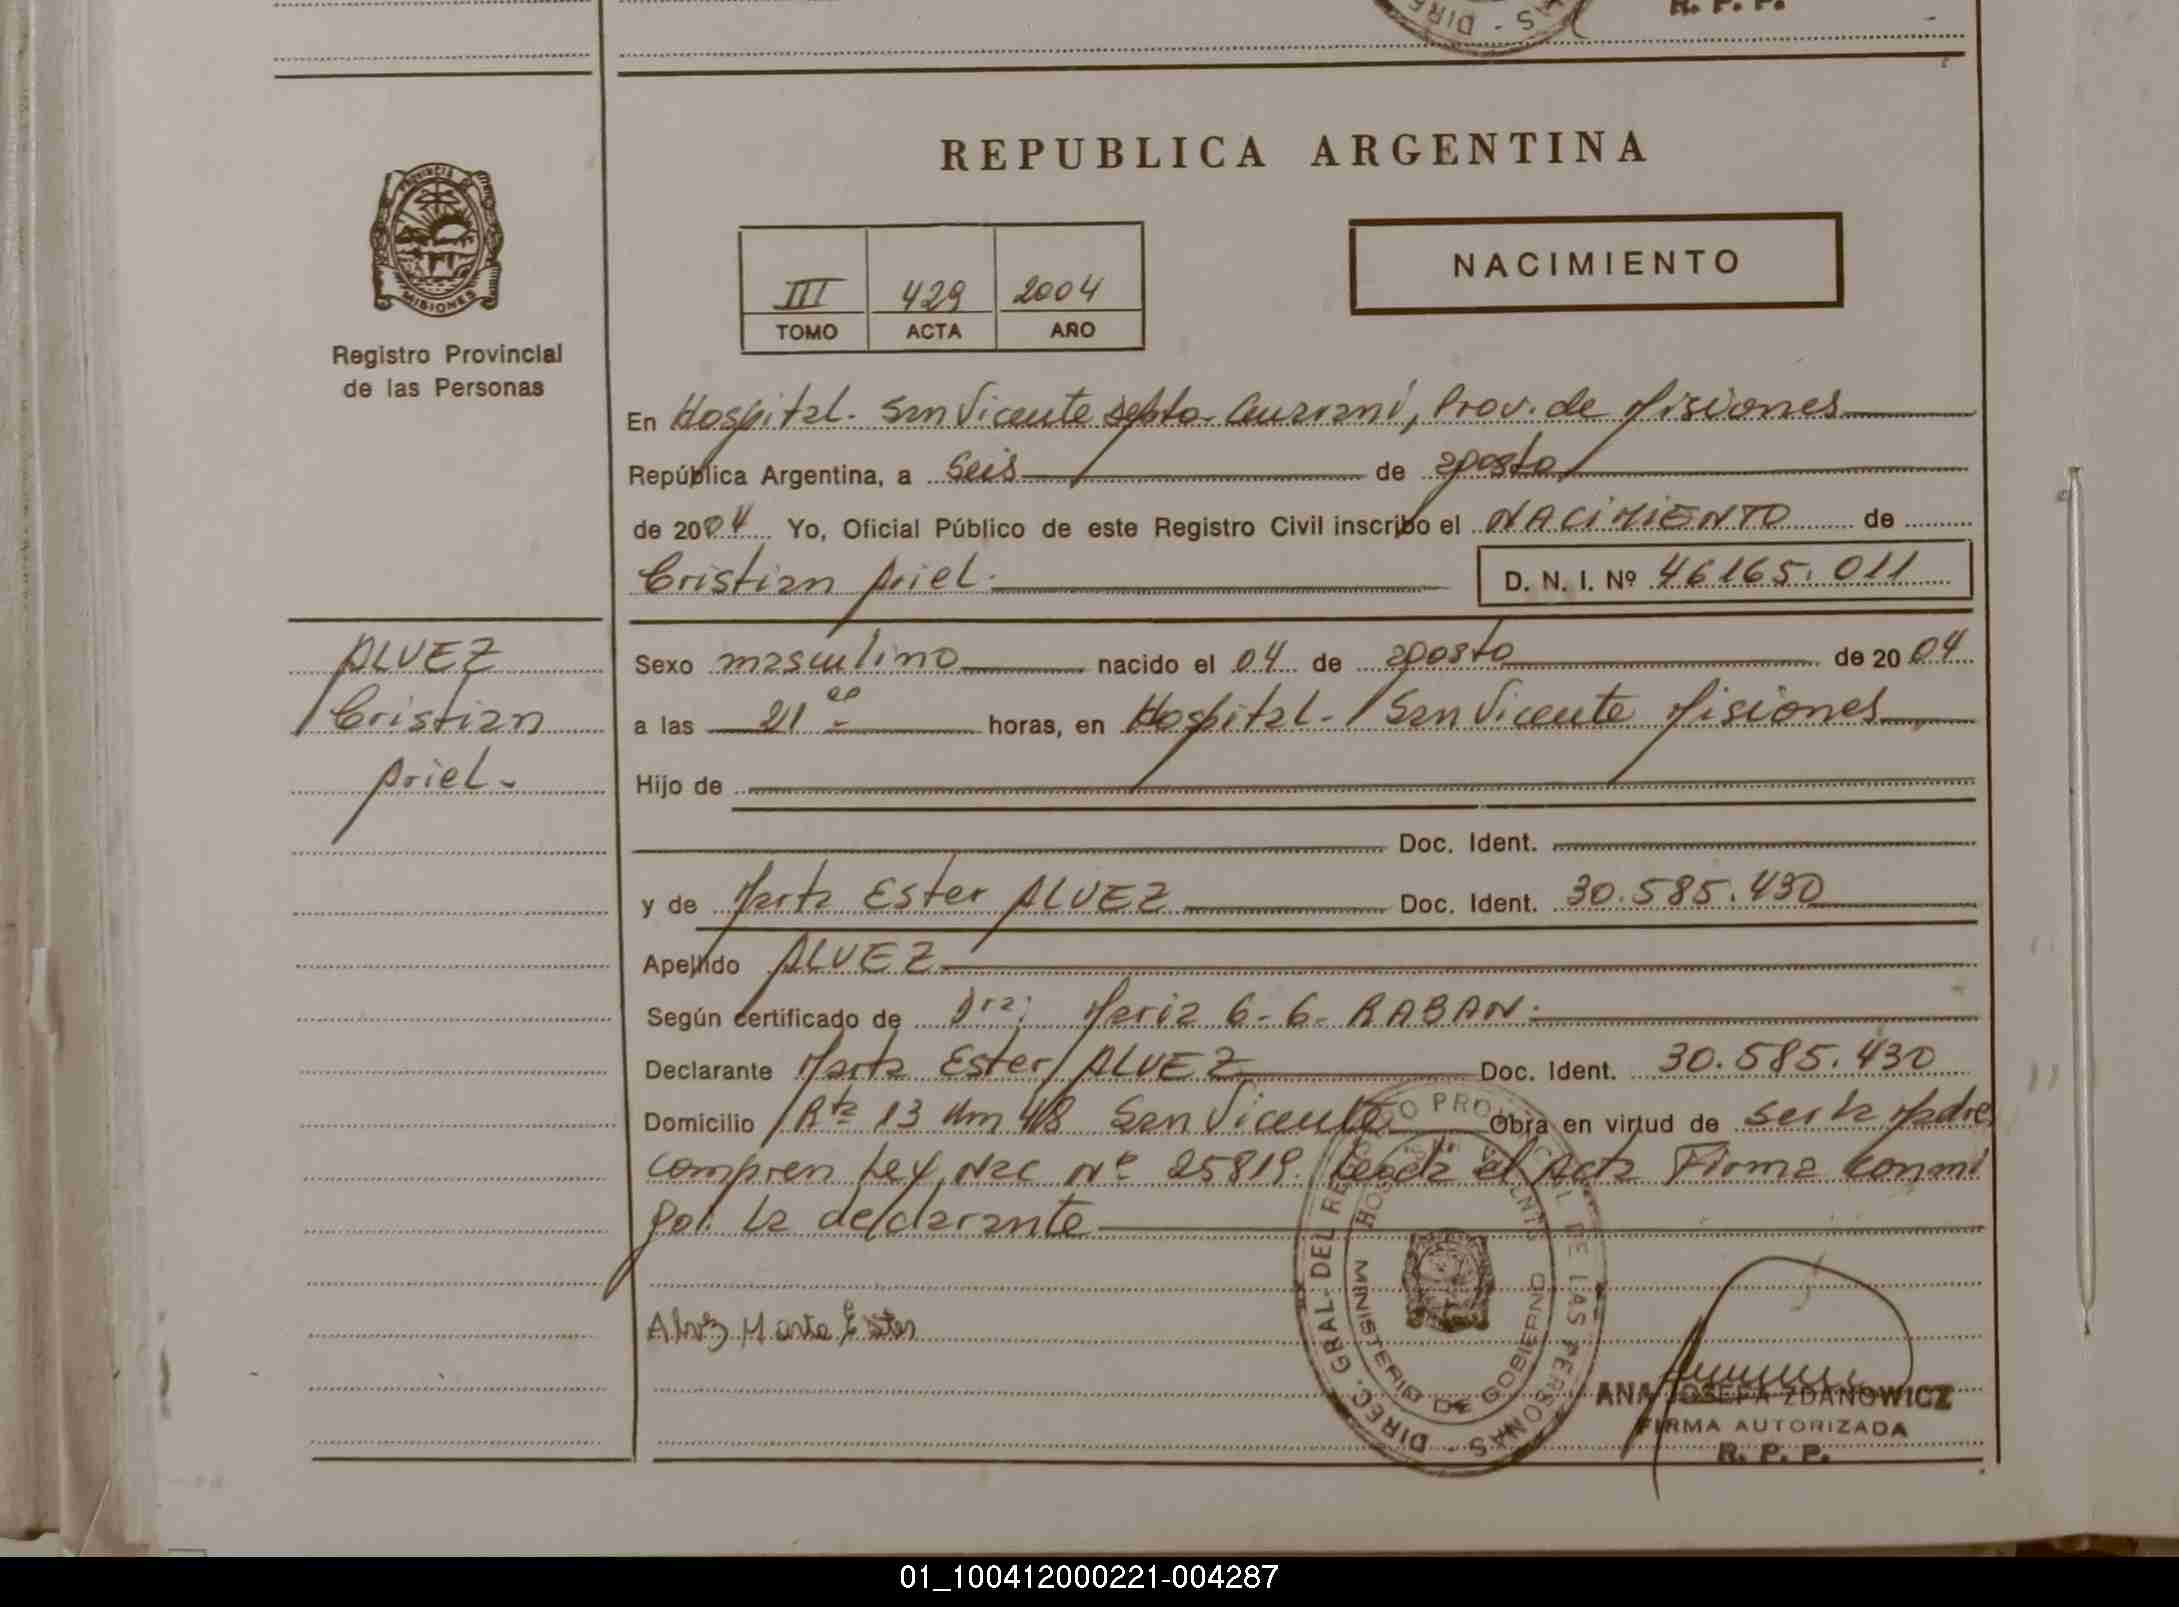 R. P. P.
REPUBLICA ARGENTINA
PROVINCIA DE
MISIONES
Registro Provincial
de las Personas
III 429 2004
TOMO ACTA AÑO
NACIMIENTO
En Hospital. San Vicente depto. Guarani, Prov. de Misiones
República Argentina, a seis de agosto
de 2004 Yo, Oficial Público de este Registro Civil inscribo el NACIMIENTO de
Cristian Ariel. D. N. I. Nº 46165.011
ALVEZ
Cristian
Ariel.
Sexo masculino nacido el 04 de agosto de 2004
a las 21 00 horas, en Hospital. San Vicente Misiones
Hijo de
Doc. Ident.
y de Marta Ester ALVEZ Doc. Ident. 30.585.430
Apellido ALVEZ
Según certificado de Dra: Maria G. G. RABAN.
Declarante Marta Ester ALVEZ Doc. Ident. 30.585.430
Domicilio Rta 13 Km 48 San Vicente Obra en virtud de ser la Madre
Compren Ley Nac Nº 25819. Leida el Acta Firma Conmi
go. la declarante
Alvez Marta Ester
DIREC. GRAL. DEL REGISTRO PROVINCIAL DE LAS PERSONAS -
HOSP. SAN VICENTE
MINISTERIO DE GOBIERNO
ANA JOSEFA ZDANOWICZ
FIRMA AUTORIZADA
R. P. P.
01_100412000221-004287